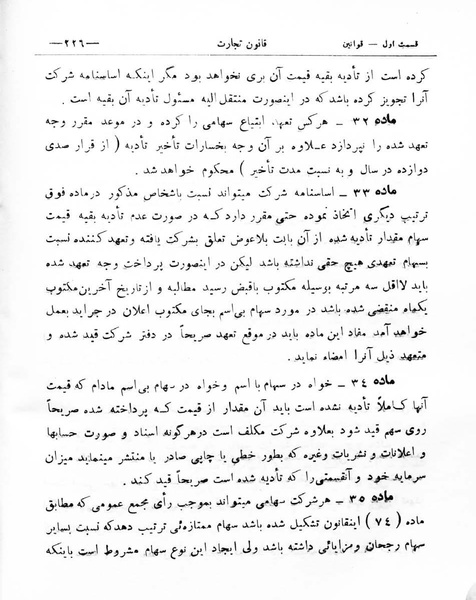 قسمت اول — قوانین
قانون تجارت
—۲۲۶—
کرده است از تأدیه بقیه قیمت آن بری نخواهد بود مگر اینکه اساسنامه شرکت
آنرا تجویز کرده باشد که در اینصورت منتقل الیه مسئول تأدیه آن بقیه است .
ماده ۳۲ — هرکس تعهد ابتیاع سهامی را کرده و در موعد مقرر وجه
تعهد شده را نپردازد علاوه بر آن وجه بخسارات تأخیر تأدیه ( از قرار صدی
دوازده در سال و به نسبت مدت تأخیر ) محکوم خواهد شد .
ماده ۳۳ — اساسنامه شرکت میتواند نسبت باشخاص مذکور درماده فوق
ترتیب دیگری اتخاذ نموده حتی مقرر دارد که در صورت عدم تأدیه بقیه قیمت
سهام مقدار تأدیه شده از آن بابت بلاعوض تعلق بشرکت یافته وتعهد کننده نسبت
بسهام تعهدی هیچ حقی نداشته باشد لیکن در اینصورت پرداخت وجه تعهد شده
باید لااقل سه مرتبه بوسیله مکتوب باقبض رسید مطالبه و ازتاریخ آخرین مکتوب
یکماه منقضی شده باشد در مورد سهام بی‌اسم بجای مکتوب اعلان در جراید بعمل
خواهد آمد مفاد این ماده باید در موقع تعهد صریحاً در دفتر شرکت قید شده و
متعهد ذیل آنرا امضاء نماید .
ماده ۳۴ — خواه در سهام با اسم وخواه در سهام بی‌اسم مادام که قیمت
آنها کاملاً تأدیه نشده است باید آن مقدار از قیمت که پرداخته شده صریحاً
روی سهم قید شود بعلاوه شرکت مکلف است درهرگونه اسناد و صورت حسابها
و اعلانات و نشریات وغیره که بطور خطی یا چاپی صادر یا منتشر مینماید میزان
سرمایه خود و آنقسمتی را که تأدیه شده است صریحاً قید کند .
ماده ۳۵ — هرشرکت سهامی میتواند بموجب رأی مجمع عمومی که مطابق
ماده ( ۷۴ ) اینقانون تشکیل شده باشد سهام ممتازه‌ئی ترتیب دهدکه نسبت بسایر
سهام رجحان ومزایائی داشته باشد ولی ایجاد این نوع سهام مشروط است باینکه